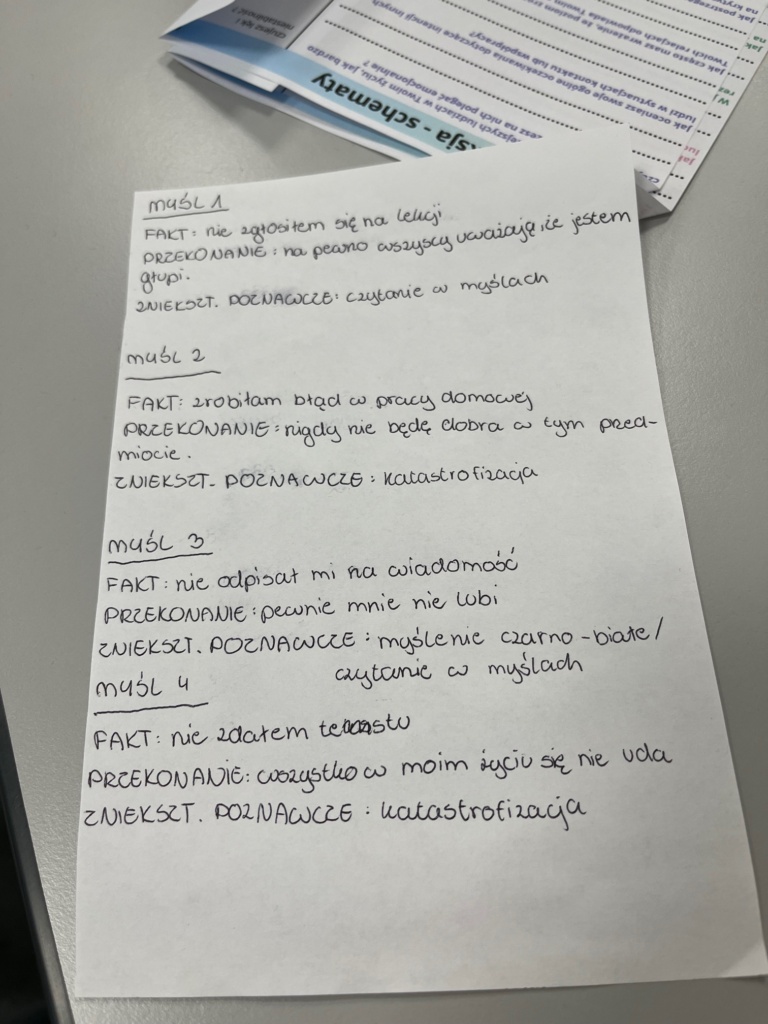 czujesz lęk i
niestabilność?
sja - schematy
jejszych ludziach w Twoim życiu, jak bardzo
żesz na nich polegać emocjonalnie?
jak oceniasz swoje ogólne oczekiwania dotyczące intencji innych
ludzi w sytuacjach kontaktu lub współpracy?
MYŚL 1
FAKT: nie zgłosiłem się na lekcji
PRZEKONANIE: na pewno wszyscy uważają, że jestem
głupi.
ZNIEKSZT. POZNAWCZE: czytanie w myślach
MYŚL 2
FAKT: zrobiłam błąd w pracy domowej
PRZEKONANIE: nigdy nie będę dobra w tym przed-
miocie.
ZNIEKSZT. POZNAWCZE: katastrofizacja
MYŚL 3
FAKT: nie odpisał mi na wiadomość
PRZEKONANIE: pewnie mnie nie lubi
ZNIEKSZT. POZNAWCZE: myślenie czarno-białe/
czytanie w myślach
MYŚL 4
FAKT: nie zdałem testu
PRZEKONANIE: wszystko w moim życiu się nie uda
ZNIEKSZT. POZNAWCZE: katastrofizacja